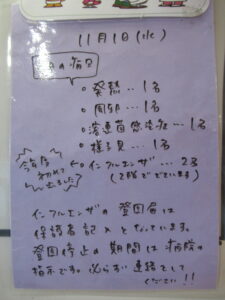 11月1日(水)
の病気
・発熱‥1名
・風邪‥1名
・溶連菌感染症‥1名
・様子見‥1名
・インフルエンザ…2名
(2階ででています)
今年度
初めて
出ました
インフルエンザの登園届は
保護者記入となっています。
登園停止の期間は病院の
指示です。必らずご連絡して
ください!!